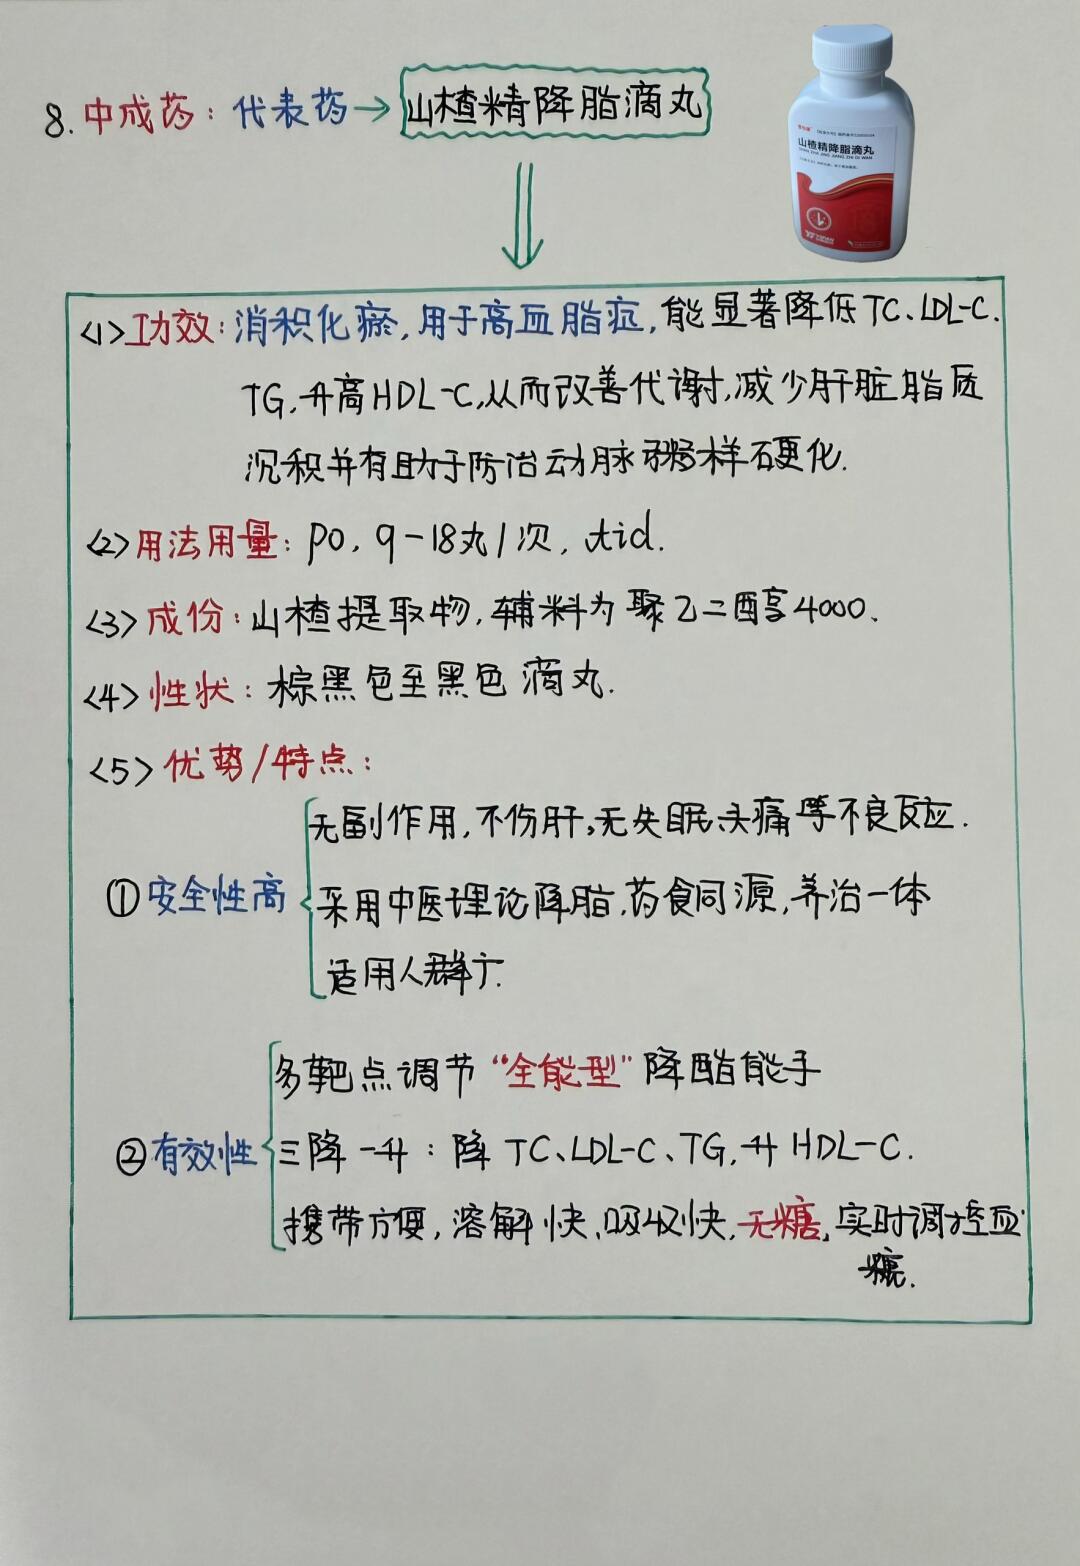 8. 中成药：代表药→山楂精降脂滴丸
山楂精降脂滴丸
SHAN ZHA JING JIANG ZHI DI WAN
<1>功效：消积化瘀，用于高血脂症，能显著降低TC、LDL-C.
TG，升高HDL-C，从而改善代谢，减少肝脏脂质
沉积并有助于防治动脉粥样硬化.
<2>用法用量：po，9-18丸/次，tid.
<3>成份：山楂提取物，辅料为聚乙二醇4000、
<4>性状：棕黑色至黑色滴丸.
<5>优势/特点：
无副作用，不伤肝，无失眠、头痛等不良反应.
①安全性高
采用中医理论降脂，药食同源，养治一体
适用人群广.
多靶点调节“全能型”降酯能手
②有效性
三降一升：降TC、LDL-C、TG，升HDL-C.
携带方便，溶解快、吸收快，无糖，实时调控血
糖.